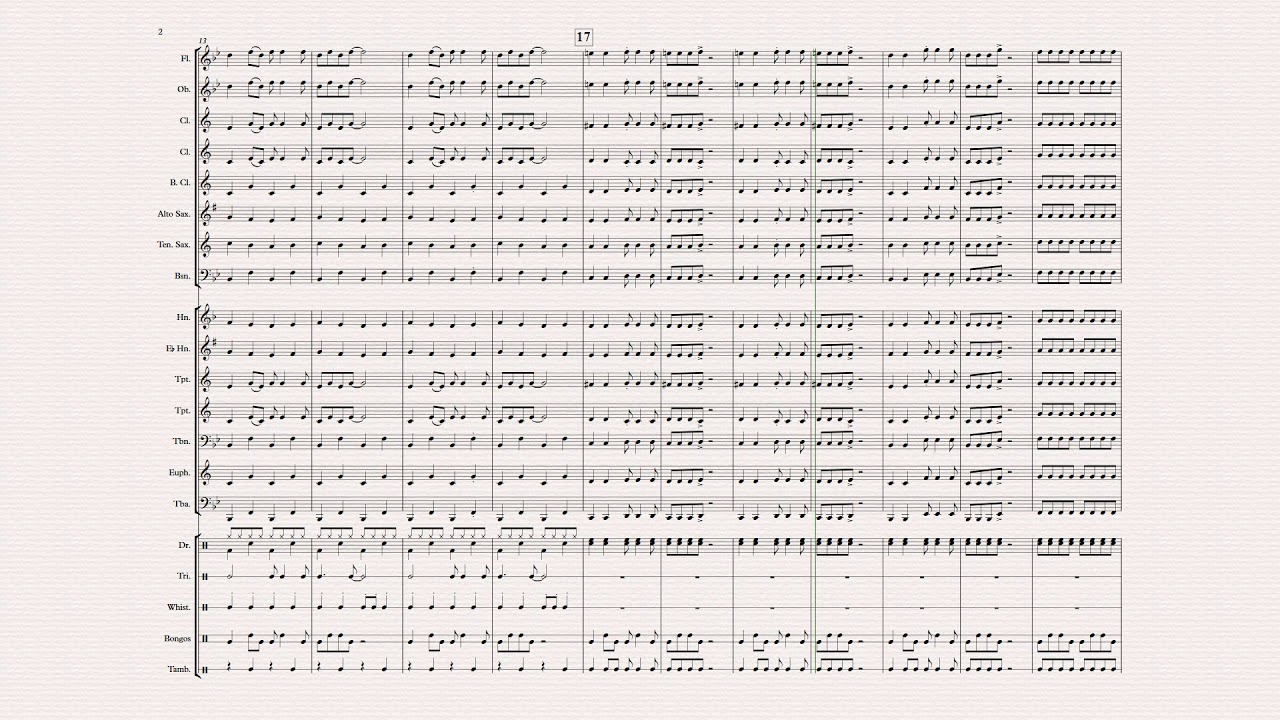 2
17
13
Fl.
Ob.
Cl.
Cl.
B. Cl.
Alto Sax.
Ten. Sax.
Bsn.
Hn.
E♭ Hn.
Tpt.
Tpt.
Tbn.
Euph.
Tba.
Dr.
Tri.
Whist.
Bongos
Tamb.